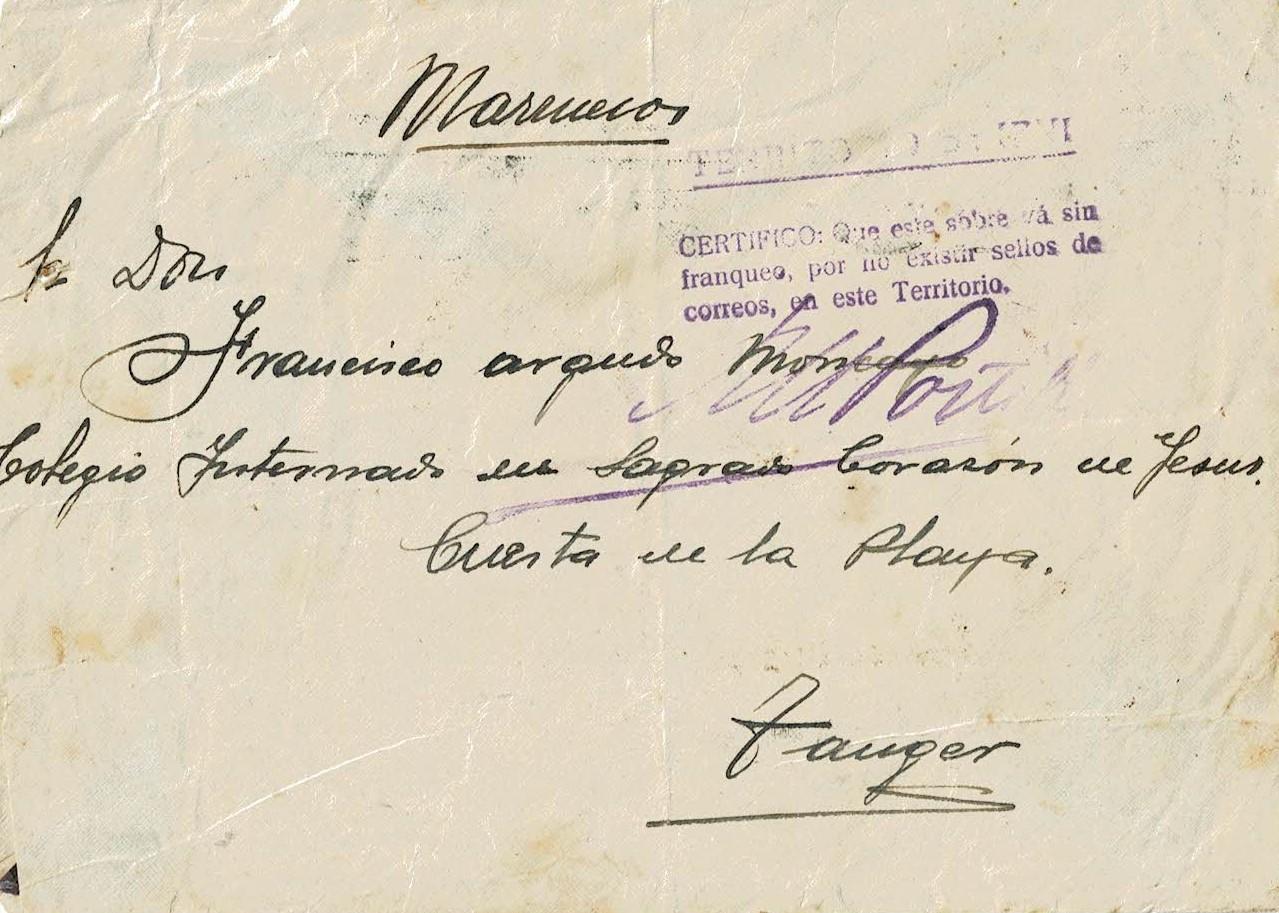 Marruecos
TERRITORIO DE IFNI
CERTIFICO: Que este sobre vá sin
franqueo, por no existir sellos de
correos, en este Territorio.
Sr Don
Francisco argudo
Colegio Internado de Sagrado Corazón de Jesus.
Cuesta de la Playa.
Tanger